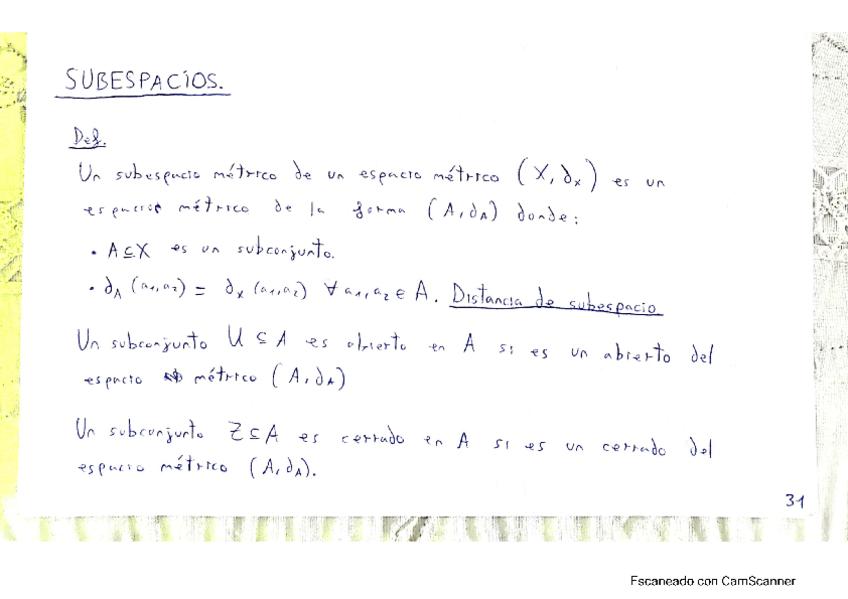 SUBESPACIOS.
Def.
Un subespacio métrico de un espacio métrico (X, d_X) es un
espacio métrico de la forma (A, d_A) donde:
• A ⊆ X es un subconjunto.
• d_A (a₁, a₂) = d_X (a₁, a₂) ∀ a₁, a₂ ∈ A. Distancia de subespacio
Un subconjunto U ⊆ A es abierto en A si es un abierto del
espacio métrico (A, d_A)
Un subconjunto Z ⊆ A es cerrado en A si es un cerrado del
espacio métrico (A, d_A).
31
Escaneado con CamScanner